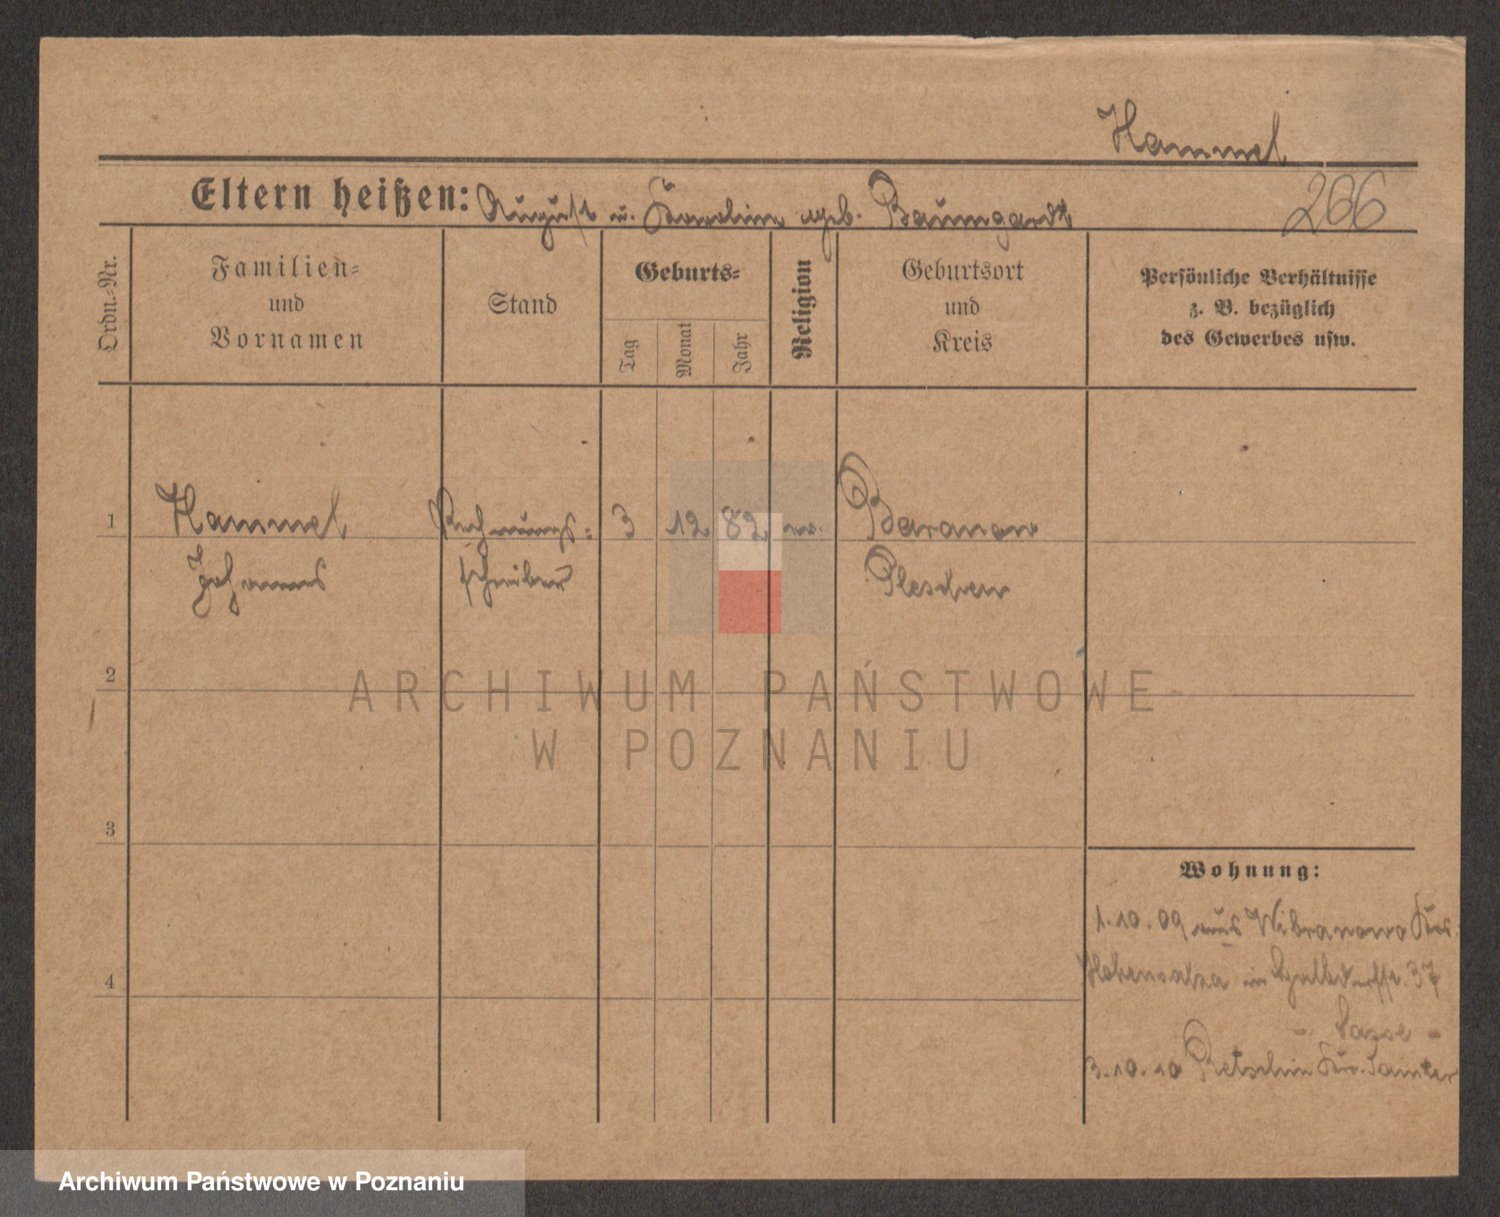 Hammel
Eltern heißen: August u. Karoline geb. Baumgardt
266
Ordn.-Nr.
Familien-
und
Vornamen
Stand
Geburts-
Tag
Monat
Jahr
Religion
Geburtsort
und
Kreis
Persönliche Verhältnisse
z. B. bezüglich
des Gewerbes usw.
1
Hammel
Johannes
Rechnungs-
schreiber
3
12
82
ev.
Baranow
Pleschen
2
3
4
Wohnung:
1.10.09 aus Wibranowo Krs.
Hohensalza in 37
- Sasse -
3.10.10 Retschin Kr. Samter
ARCHIWUM PAŃSTWOWE
W POZNANIU
Archiwum Państwowe w Poznaniu